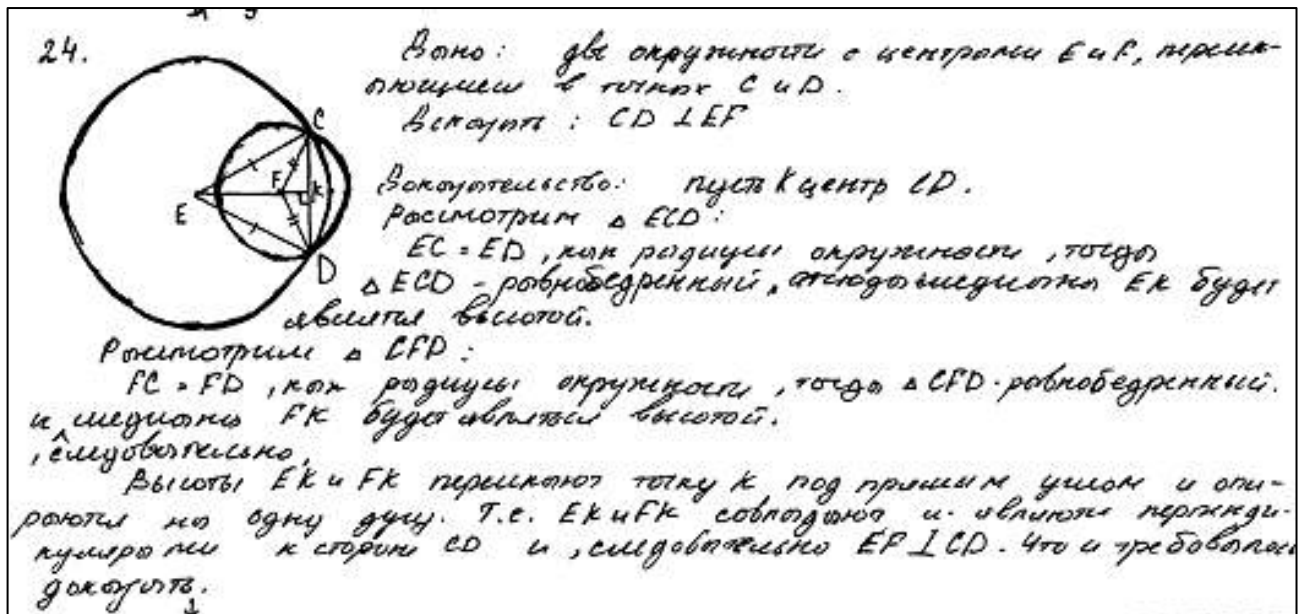 24.
Дано: две окружности с центрами E и F, пересек-
ающиеся в точках C и D.
Доказать: CD ⊥ EF
C
F
K
E
D
Доказательство: пусть K центр CD.
Рассмотрим △ ECD:
EC = ED, как радиусы окружности, тогда
△ ECD - равнобедренный, отсюда медиана EK будет
являться высотой.
Рассмотрим △ CFD:
FC = FD, как радиусы окружности, тогда △ CFD - равнобедренный.
и медиана FK будет являться высотой.
, следовательно,
Высоты EK и FK пересекают точку K под прямым углом и опи-
раются на одну дугу. Т.е. EK и FK совпадают и являются перпенди-
кулярами к стороне CD и, следовательно EF ⊥ CD. Что и требовалось
доказать.